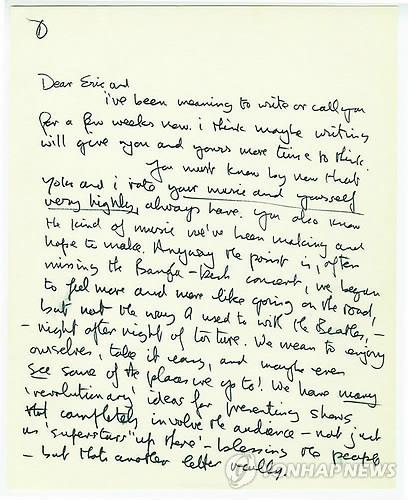 1
Dear Eric and
i've been meaning to write or call you
for a few weeks now. i think maybe writing
will give you and yours more time to think.
You must know by now that
Yoko and i rate your music and yourself
very highly, always have. You also know
the kind of music we've been making and
hope to make. Anyway the point is, after
missing the Bangla-Desh concert, we began
to feel more and more like going on the road,
but not the way I used to with the Beatles, -
- night after night of torture. We mean to enjoy
ourselves, take it easy, and maybe even
see some of the places we go to! We have many
'revolutionary' ideas for presenting shows
that completely involve the audience - not just
as 'superstars' up there' - blessing the people
- but thats another letter really.
YONHAP NEWS
YONHAP NEWS